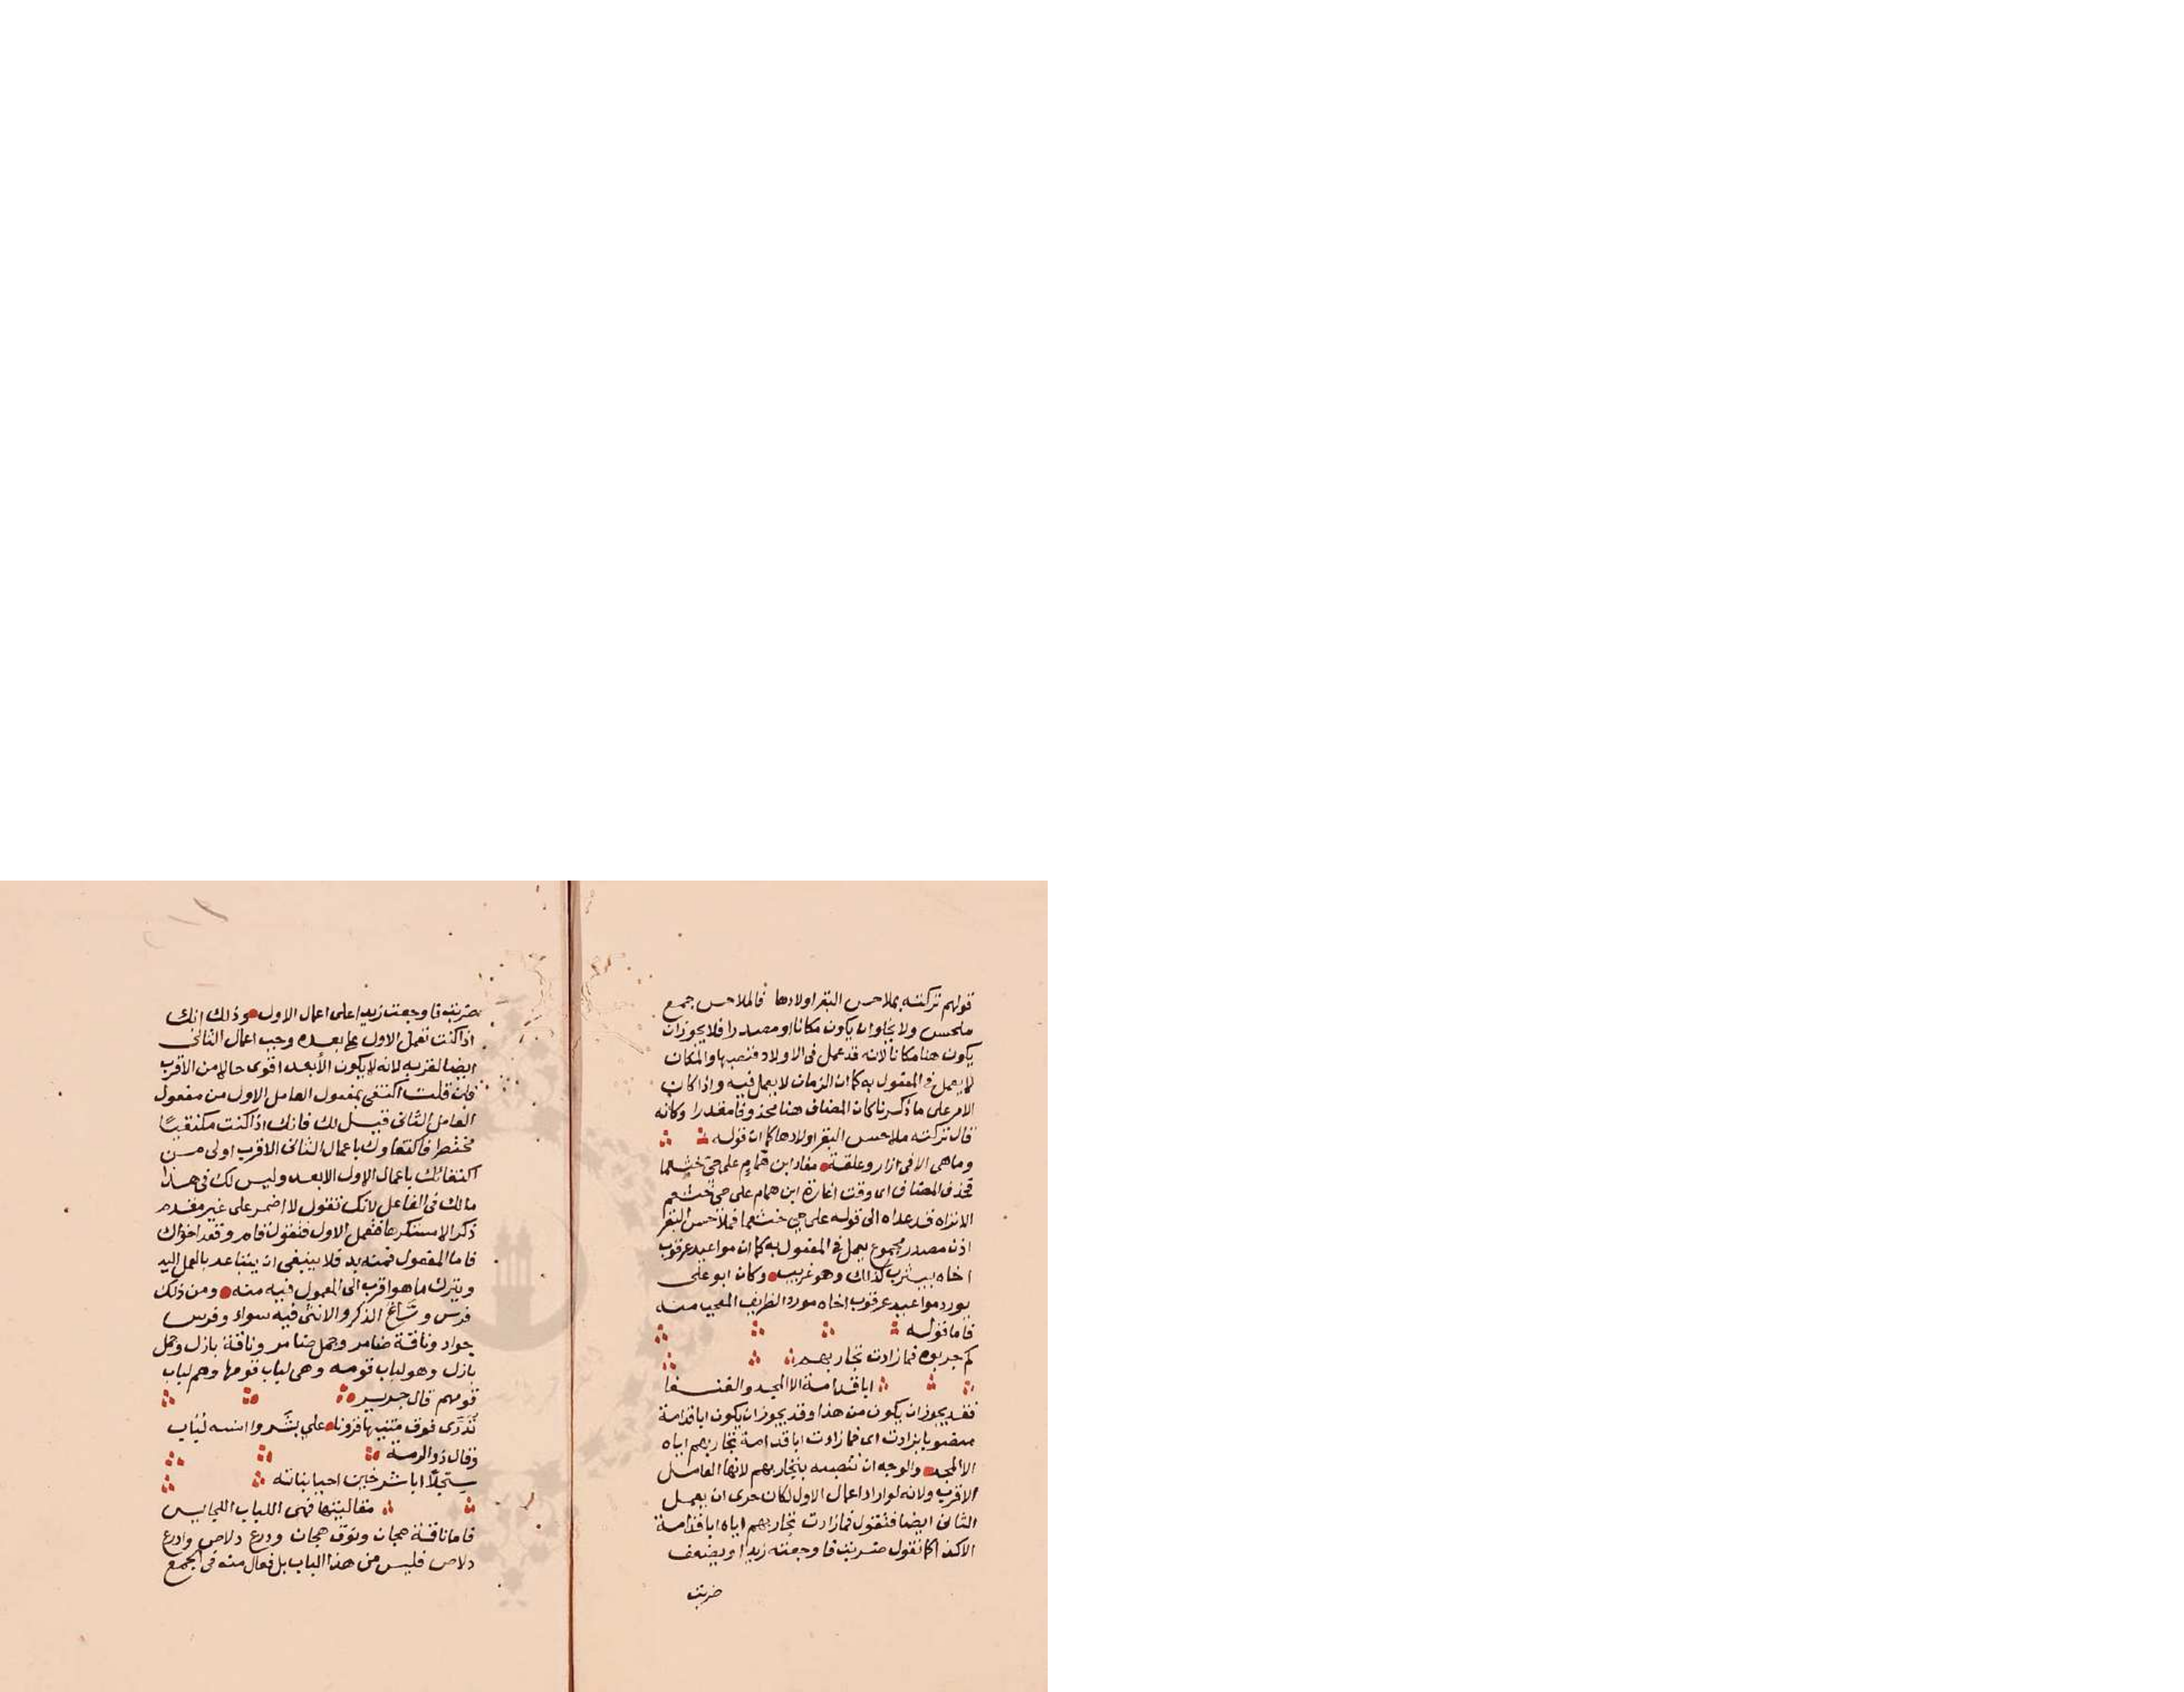 قولهم تركته بملاحس البقر اولادها فالملاحس جمع
ملحس ولا يخلوا ان يكون مكانا او مصدرا فلا يجوز ان
يكون هنا مكانا لانه قد عمل فى الاولاد فنصبها والمكان
لا يعمل فى المفعول به كما ان الزمان لا يعمل فيه واذا كان
الامر على ما ذكرنا كان المضاف هنا محذوفا مقدرا وكانه
قال تركته ملاحس البقر اولادها كما ان قوله
وما هى الا فى ازار وعلقة مغار ابن همام على حى خثعما
فحذف المضاف اى وقت اغارة ابن همام على حى خثعم
الا تراه قد عداه الى قوله على حى خثعما فملاحس البقر
اذن مصدر مجموع يعمل فى المفعول به كما ان مواعيد عرقوب
اخاه بيثرب كذلك وهو غريب وكان ابو على
يورد مواعيد عرقوب اخاه مورد الطريف المعجب منه
فاما قوله
كم جربوه فما زادت تجاربهم
ابا قدامة الا المجد والفنعا
فقد يجوز ان يكون من هذا وقد يجوز ان يكون ابا قدامة
منصوبا بزادت اى فما زادت ابا قدامة تجاربهم اياه
الا المجد والوجه ان تنصبه بتجاربهم لانها العامل
الاقرب ولانه لو اراد اعمال الاول لكان حرى ان يعمل
الثانى ايضا فنقول فما زادت تجاربهم اياه ابا قدامة
الا كذا كما نقول ضربت فاوجعته زيدا ويضعف
ضربت
ضربت فاوجعت زيدا على اعمال الاول وذلك انك
اذا كنت تعمل الاول على بعده وجب اعمال الثانى
ايضا لقربه لانه لا يكون الأبعد اقوى حالا من الاقرب
فان قلت اكتفى بمفعول العامل الاول من مفعول
العامل الثانى قيل لك فانك اذا كنت مكتفيًا
مختصرا فاكتفاوك باعمال الثانى الاقرب اولى من
اكتفائك باعمال الاول الابعد وليس لك فى هذا
مالك فى الفاعل لانك تقول لا اضمر على غير مقدم
ذكر الا مستكرها فتعمل الاول فتقول قام وقعد اخواك
فاما المفعول فمنه بد فلا ينبغى ان يتباعد بالعمل اليه
ويترك ما هو اقرب الى المعمول فيه منه ومن ذلك
فرس وساغ الذكر والانثى فيه سواء وفرس
جواد وناقة ضامر وجمل ضامر وناقة بازل وجمل
بازل وهو لباب قومه وهى لباب قومها وهم لباب
قومهم قال جرير
تدرى فوق متنيها قرونا على بشر وانسه لباب
وقال ذو الرمة
سبحلا ابا شرخين احيا بناته
مقاليتها فهى اللباب الحبايس
فاما ناقة هجان ونوق هجان ودرع دلاص وادرع
دلاص فليس من هذا الباب بل فعال منه فى الجمع